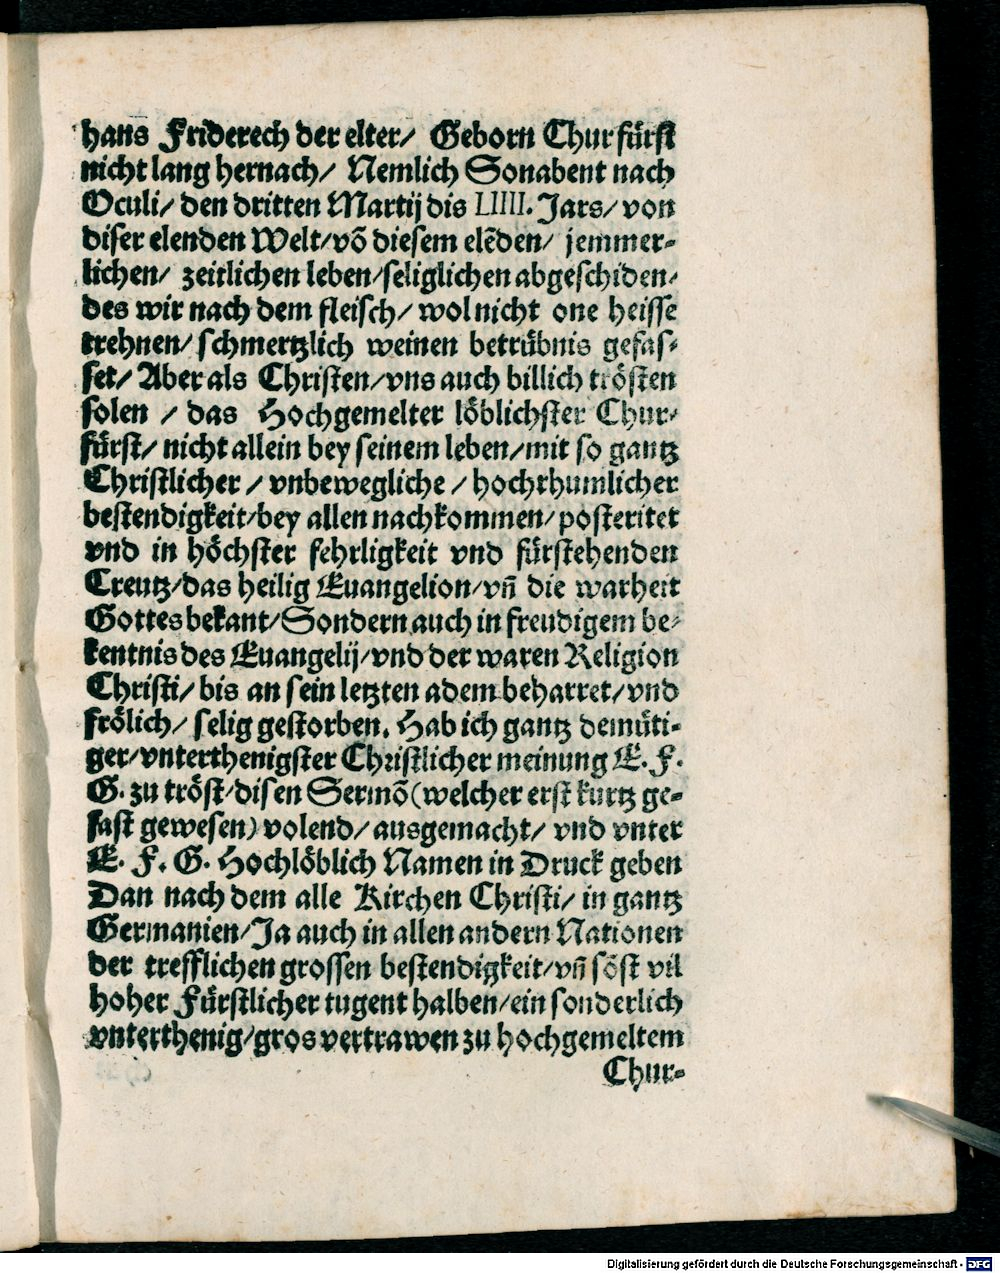 hans Friderech der elter/ Geborn Churfürst
nicht lang hernach/ Nemlich Sonabent nach
Oculi/ den dritten Martij dis LIIII. Jars/ von
diser elenden Welt/võ diesem elẽden/ jemmer-
lichen/ zeitlichen leben/seliglichen abgeschiden/
des wir nach dem fleisch/ wol nicht one heisse
trehnen/ schmertzlich weinen betrübnis gefas-
set/ Aber als Christen/vns auch billich trösten
solen / das Hochgemelter löblichster Chur-
fürst/ nicht allein bey seinem leben/mit so gantz
Christlicher / vnbewegliche / hochrhumlicher
bestendigkeit/bey allen nachkommen/ posteritet
vnd in höchster fehrligkeit vnd fürstehenden
Creutz/das heilig Euangelion/vñ die warheit
Gottes bekant/Sondern auch in freudigem be-
kentnis des Euangelij/vnd der waren Religion
Christi/ bis an sein letzten adem beharret/vnd
frölich/ selig gestorben. Hab ich gantz demüti-
ger/vnterthenigster Christlicher meinung E. F.
G. zu tröst/disen Sermõ(welcher erst kurtz ge-
fast gewesen) volend/ ausgemacht/ vnd vnter
E. F. G. Hochlöblich Namen in Druck geben
Dan nach dem alle Kirchen Christi/ in gantz
Germanien/Ja auch in allen andern Nationen
der trefflichen grossen bestendigkeit/vñ söst vil
hoher Fürstlicher tugent halben/ein sonderlich
vnterthenig/gros vertrawen zu hochgemeltem
Chur-
Digitalisierung gefördert durch die Deutsche Forschungsgemeinschaft - DFG